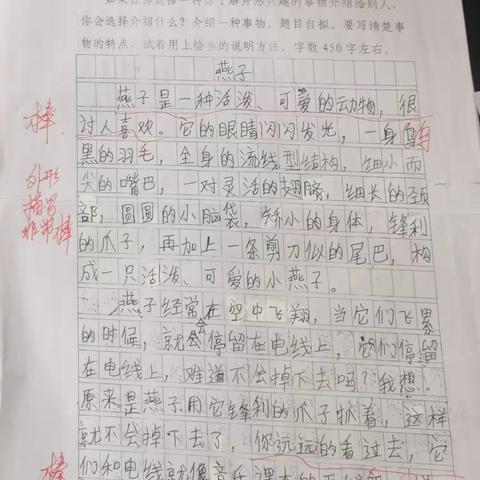 如果让你选择一种你了解并感兴趣的事物介绍给别人,
你会选择介绍什么?介绍一种事物。题目自拟。要写清楚事
物的特点,试着用上恰当的说明方法。字数450字左右。
燕子
燕子是一种活泼、可爱的动物,很
讨人喜欢。它的眼睛闪闪发光,一身乌
黑的羽毛,全身的流线型结构,细小而
尖的嘴巴,一对灵活的翅膀,细长的颈
部,圆圆的小脑袋,娇小的身体,锋利
的爪子,再加上一条剪刀似的尾巴,构
成一只活泼、可爱的小燕子。
燕子经常在空中飞翔,当它们飞累
的时候,就会停留在电线上,它们停留
在电线上,难道不会掉下去吗?我想。
原来是燕子用它锋利的爪子抓着,这样
就不会掉下去了,你远远的看过去,它
们和电线就像音乐课本的
棒
外形
描写
非常棒
棒